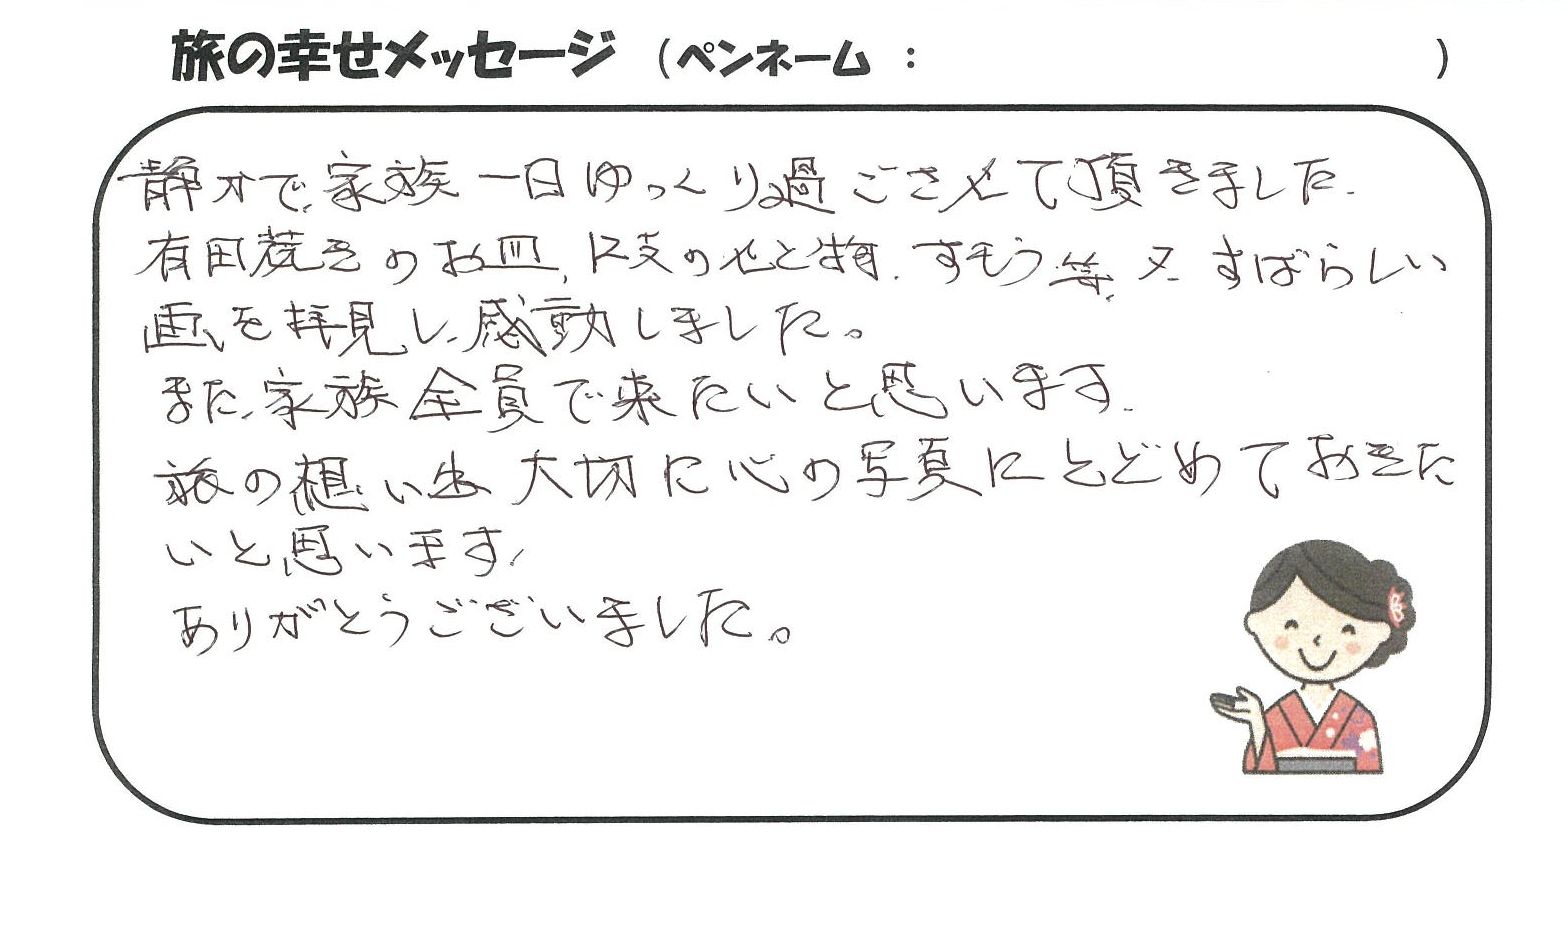 旅の幸せメッセージ （ペンネーム：　　　　　）
静かで、家族一日ゆっくり過ごさせて頂きました.
有田焼きのお皿、陶の置物、すもう等、又すばらしい
画を拝見し、感動しました。
また、家族全員で来たいと思います.
旅の想い出大切に心の写真にとどめておきた
いと思います.
ありがとうございました。